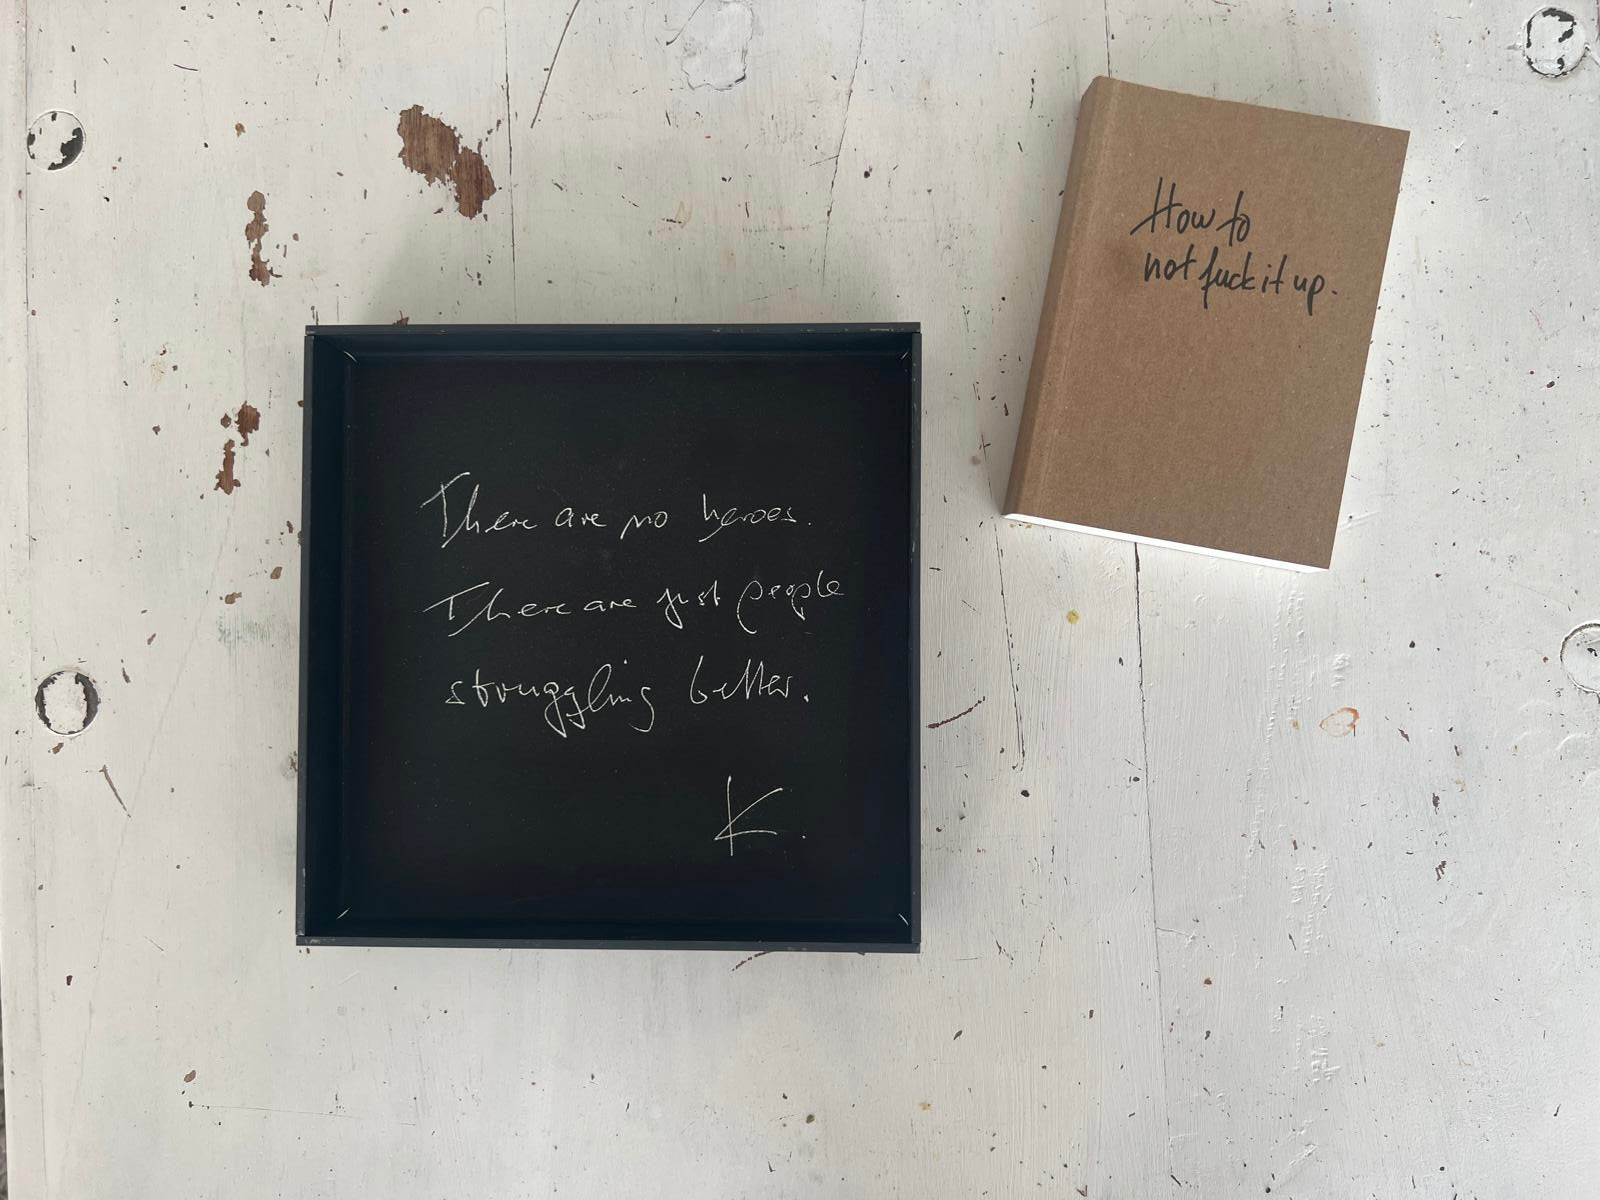 There are no heroes.
There are just people
struggling better.
K.
How to
not fuck it up.